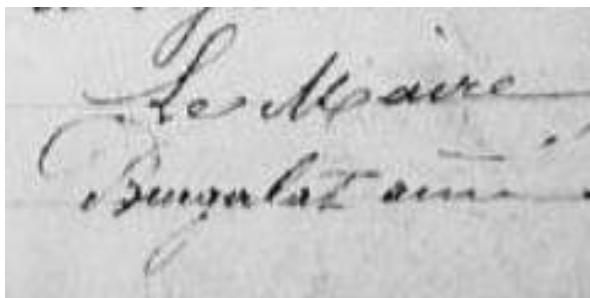 Le Maire
Burgalat ainé